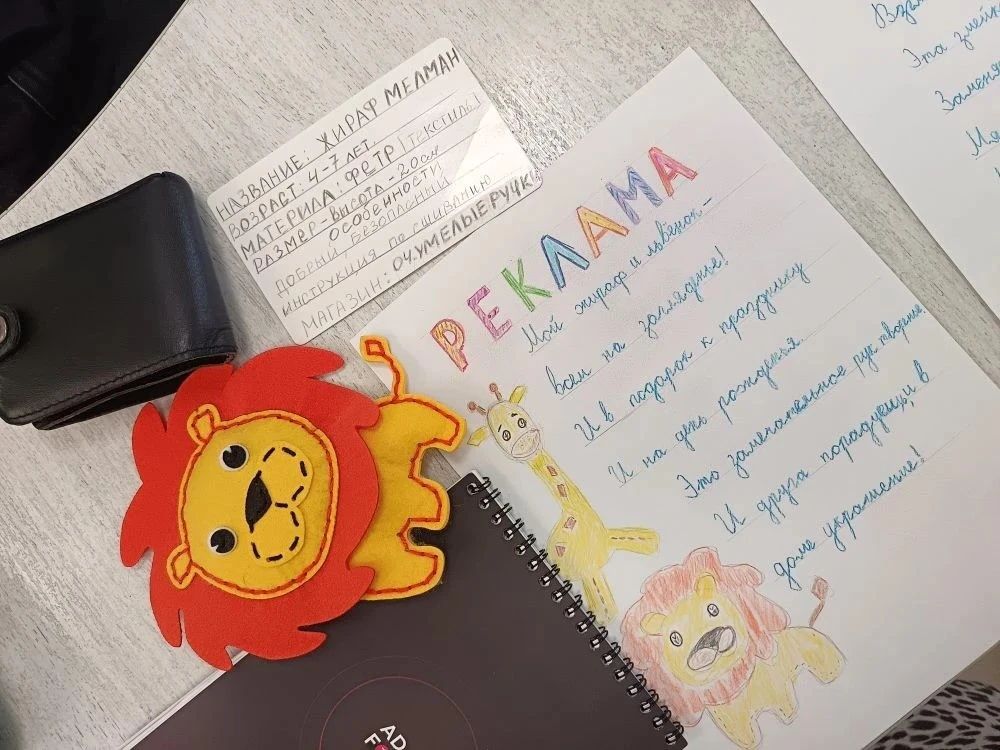 НАЗВАНИЕ: ЖИРАФ МЕЛМАН
ВОЗРАСТ: 4-7 ЛЕТ.
МАТЕРИЛА: ФЕТР (ТЕКСТИЛЬ)
РАЗМЕР - ВЫСОТА - 20 см
ОСОБЕННОСТИ:
ДОБРЫЙ, БЕЗОПАСНЫЙ
ИНСТРУКЦИЯ по сшиванию
МАГАЗИН: ОЧ.УМЕЛЫЕ РУЧКИ
РЕКЛАМА
Мой жираф и львёнок -
всем на загляденье!
И в подарок к празднику
И на день рожденья.
Это замечательное рук творенье.
И друга порадуещь, и в
доме украшение!
Эта змейк
Заменя
AD